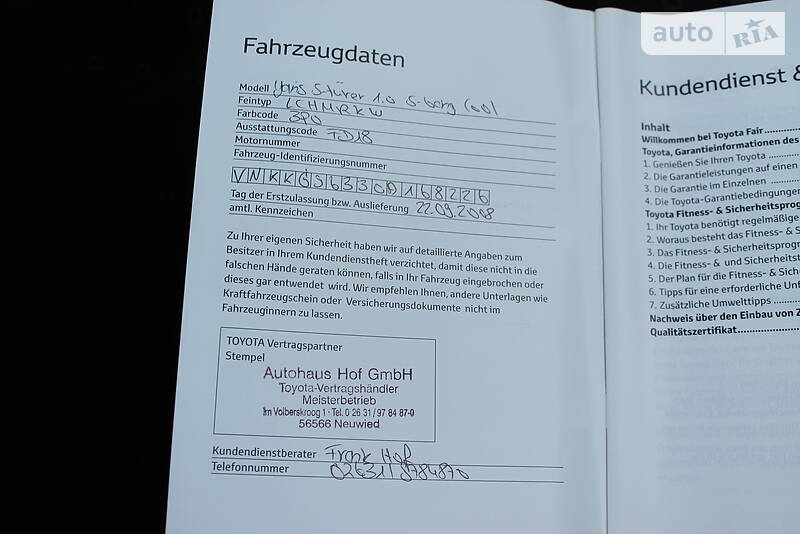 auto RIA
Fahrzeugdaten
Modell Yaris 5-türer 1.0 5-Gang Cool
Feintyp LCHMRKW
Farbcode 3P0
Ausstattungscode FD18
Motornummer
Fahrzeug-Identifizierungsnummer
VNKKG96330A168226
Tag der Erstzulassung bzw. Auslieferung 22.09.2008
amtl. Kennzeichen
Zu Ihrer eigenen Sicherheit haben wir auf detaillierte Angaben zum
Besitzer in Ihrem Kundendienstheft verzichtet, damit diese nicht in die
falschen Hände geraten können, falls in Ihr Fahrzeug eingebrochen oder
dieses gar entwendet wird. Wir empfehlen Ihnen, andere Unterlagen wie
Kraftfahrzeugschein oder Versicherungsdokumente nicht im
Fahrzeuginnern zu lassen.
TOYOTA Vertragspartner
Stempel
Autohaus Hof GmbH
Toyota-Vertragshändler
Meisterbetrieb
Im Volberskroog 1 · Tel. 0 26 31/97 84 87-0
56566 Neuwied
Kundendienstberater Frank Hof
Telefonnummer 02631/9784870
Kundendienst &
Inhalt
Willkommen bei Toyota Fair
Toyota, Garantieinformationen des
1. Genießen Sie Ihren Toyota
2. Die Garantieleistungen auf einen
3. Die Garantie im Einzelnen
4. Die Toyota-Garantiebedingungen
Toyota Fitness- & Sicherheitsprog
1. Ihr Toyota benötigt regelmäßige
2. Woraus besteht das Fitness- & S
3. Das Fitness- & Sicherheitsprogr
4. Die Fitness- & und Sicherheitst
5. Der Plan für die Fitness- & Sich
6. Tipps für eine erforderliche Unf
7. Zusätzliche Umwelttipps
Nachweis über den Einbau von Z
Qualitätszertifikat